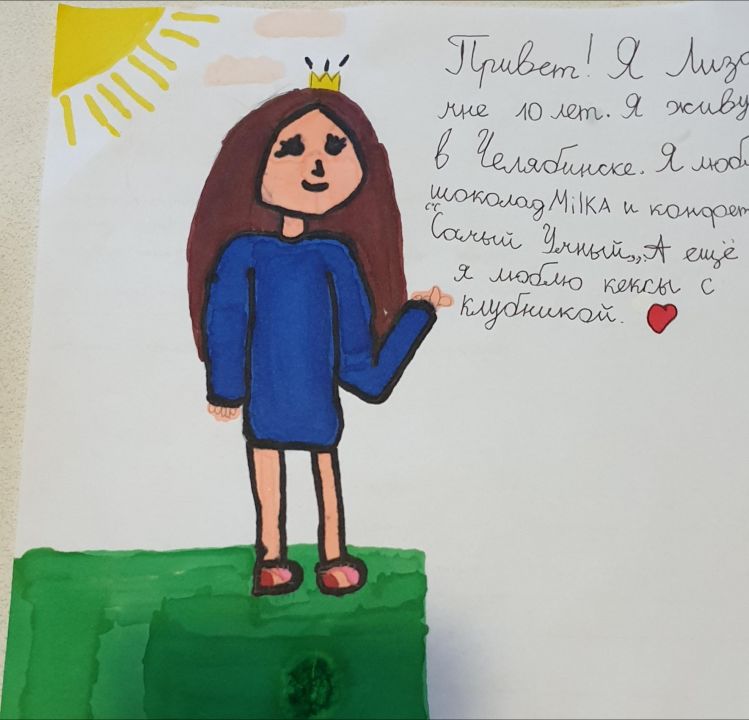 Привет! Я Лиза
мне 10 лет. Я живу
в Челябинске. Я люб
шоколад MilKA и конфет
"Самый Умный„, А ещё
я люблю кексы с
клубникой.